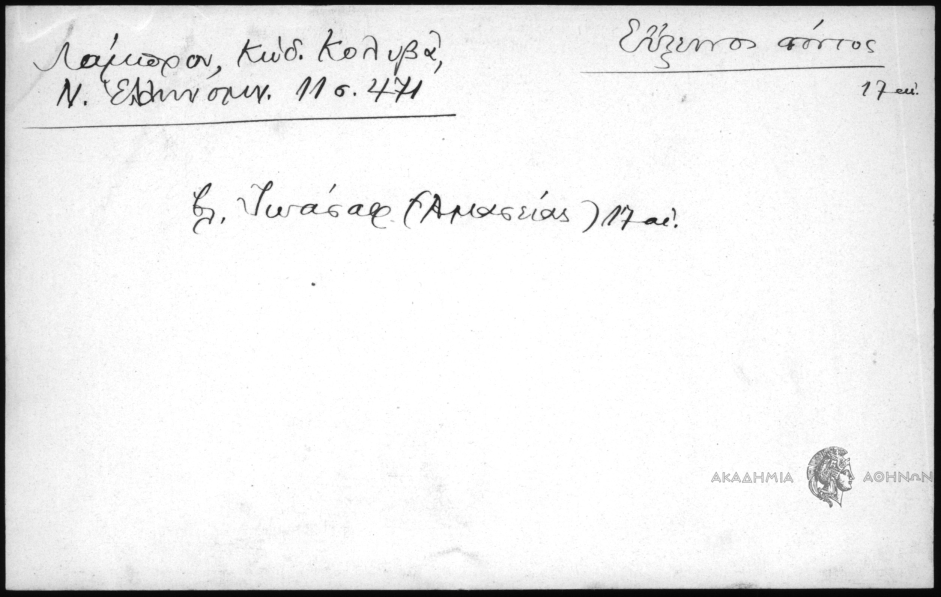 Λάμπρου, Κώδ. Κολυβᾶ,
Ν. Ἑλληνομν. 11 σ. 471
Εὔξεινος πόντος
17 αἰ.
βλ. (Ἀμασείας) 17 αἰ.
ΑΚΑΔΗΜΙΑ ΑΘΗΝΩΝ